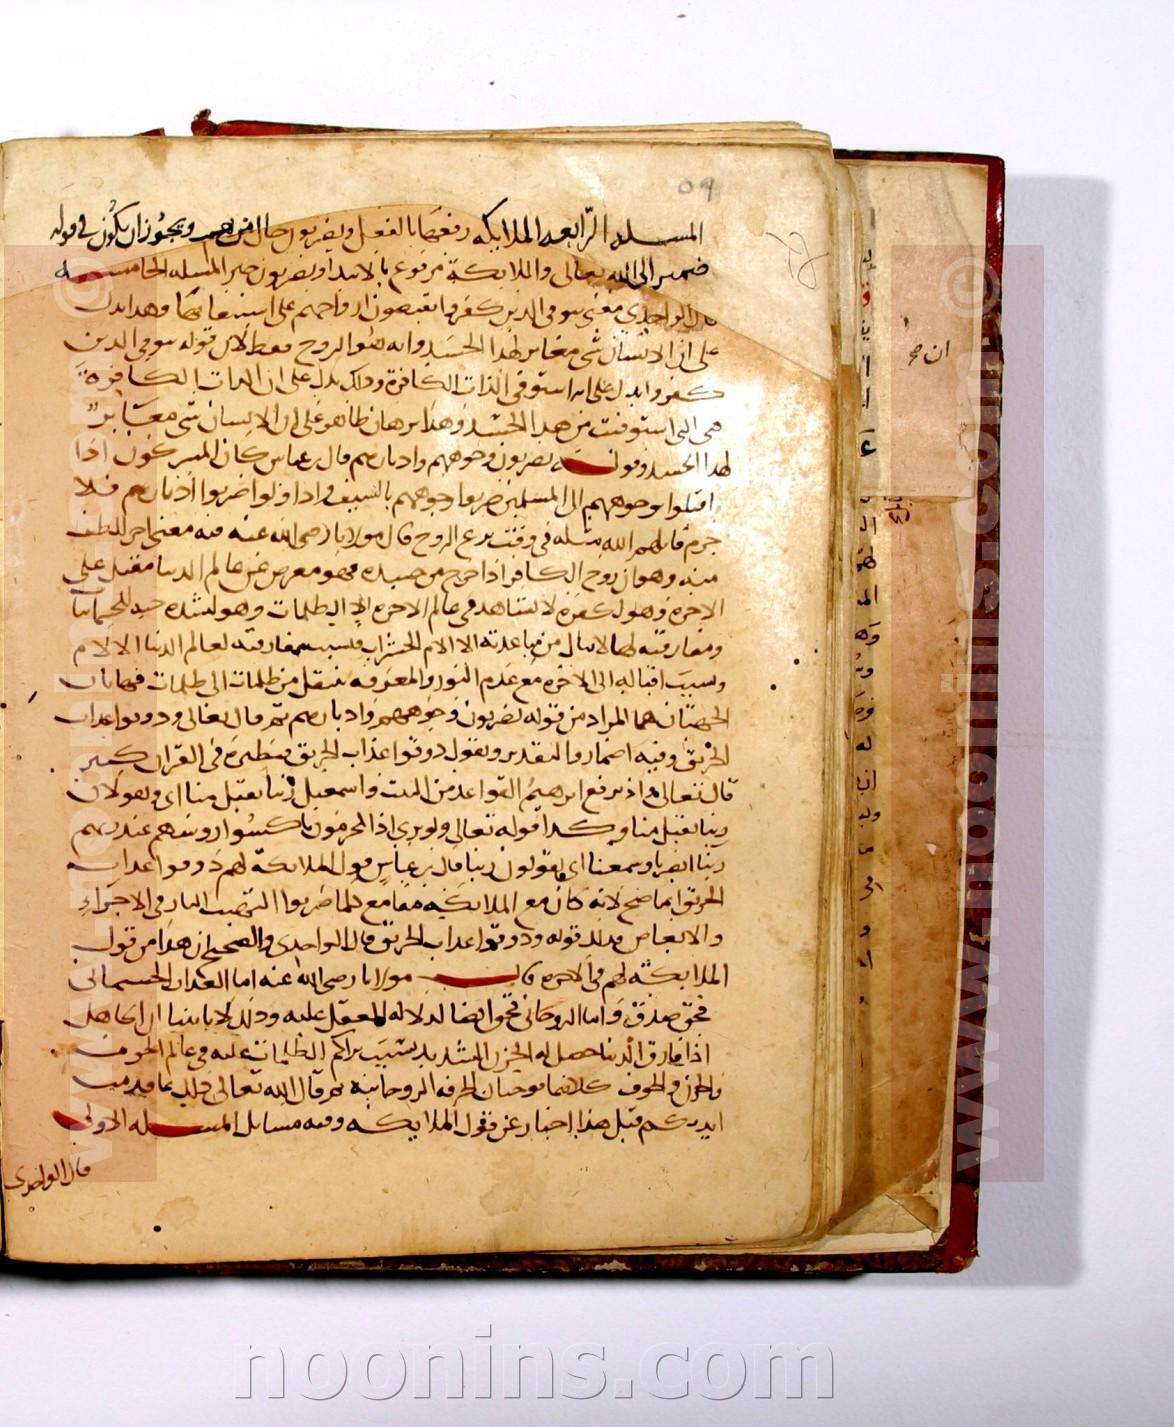 ٥٩
المسله الرابعه الملايكه رفعها بالفعل ويضربون حال منهم ويجوز ان يكون في قوله
ضمير الى الله تعالى والملايكة مرفوع بالابتدا ويضربون خبر المسله الخامسه
قال الواحدي معنى يتوفى الذين كفروا يقبضون ارواحهم على استيفائها وهذا يدل
على ان الانسان شي مغاير لهذا الجسد وانه هو الروح فقط لان قوله يتوفى الذين
كفروا يدل على انه استوفى الذات الكافرة وذلك يدل على ان الذات الكافرة
هي التي استوفيت من هذا الجسد وهذا برهان ظاهر على ان الانسان شي مغاير
لهذا الجسد وقوله يضربون وجوههم وادبارهم قال بن عباس كان المشركون اذا
اقبلوا بوجوههم الى المسلمين ضربوا وجوههم بالسيف واذا ولوا ضربوا ادبارهم فلا
جرم قابلهم الله بمثله في وقت نزع الروح قال مولانا رضى الله عنه فيه معنى اخر الطف
منه وهو ان روح الكافر اذا خرج من جسده فهو معرض عن عالم الدنيا مقبل على
الاخرة وهو لكفره لا يشاهد في عالم الاخرة الا الظلمات وهو لشدة حبه للجسمانيات
ومفارقته لها لا ينال من مباعدته الا الالام والحسرات فبسبب مفارقته لعالم الدنيا الالام
وبسبب اقباله الى الاخره مع عدم النور والمعرفه ينتقل من ظلمات الى ظلمات فهاتان
الجهتان هما المراد من قوله يضربون وجوههم وادبارهم ثم قال تعالى وذوقوا عذاب
الحريق وفيه اضمار والتقدير ونقول ذوقوا عذاب الحريق ونظيره في القرآن كثير
قال تعالى واذ يرفع ابراهيم القواعد من البيت واسمعيل ربنا تقبل منا اي ويقولان
ربنا تقبل منا وكذا قوله تعالى ولو ترى اذ المجرمون ناكسوا روسهم عند ربهم
ربنا ابصرنا وسمعنا اي يقولون ربنا قال بن عباس قول الملايكة لهم ذوقوا عذاب
الحريق انما صح لانه كان مع الملايكه مقامع كلما ضربوا التهبت النار في الاجزاء
والابعاض فذلك قوله وذوقوا عذاب الحريق قال الواحدى والصحيح ان هذا من قول
الملايكة لهم في الاخره قال مولانا رضى الله عنه اما العذاب الجسمانى
فحق وصدق واما الروحانى فحق ايضا لدلالة العقل عليه وذلك لانا بينا ان الجاهل
اذا فارق الدنيا حصل له الحزن الشديد بسبب تراكم الظلمات عليه في عالم الخوف
والحزن والخوف كلاهما يوجبان الحرقه الروحانية ثم قال الله تعالى ذلك بما قدمت
ايديكم قيل هذا اخبار عن قول الملايكه وفيه مسايل المسله الاولى
قال الواحدى
ان صح
www.noonins.com ©
www.noonins.com ©
noonins.com